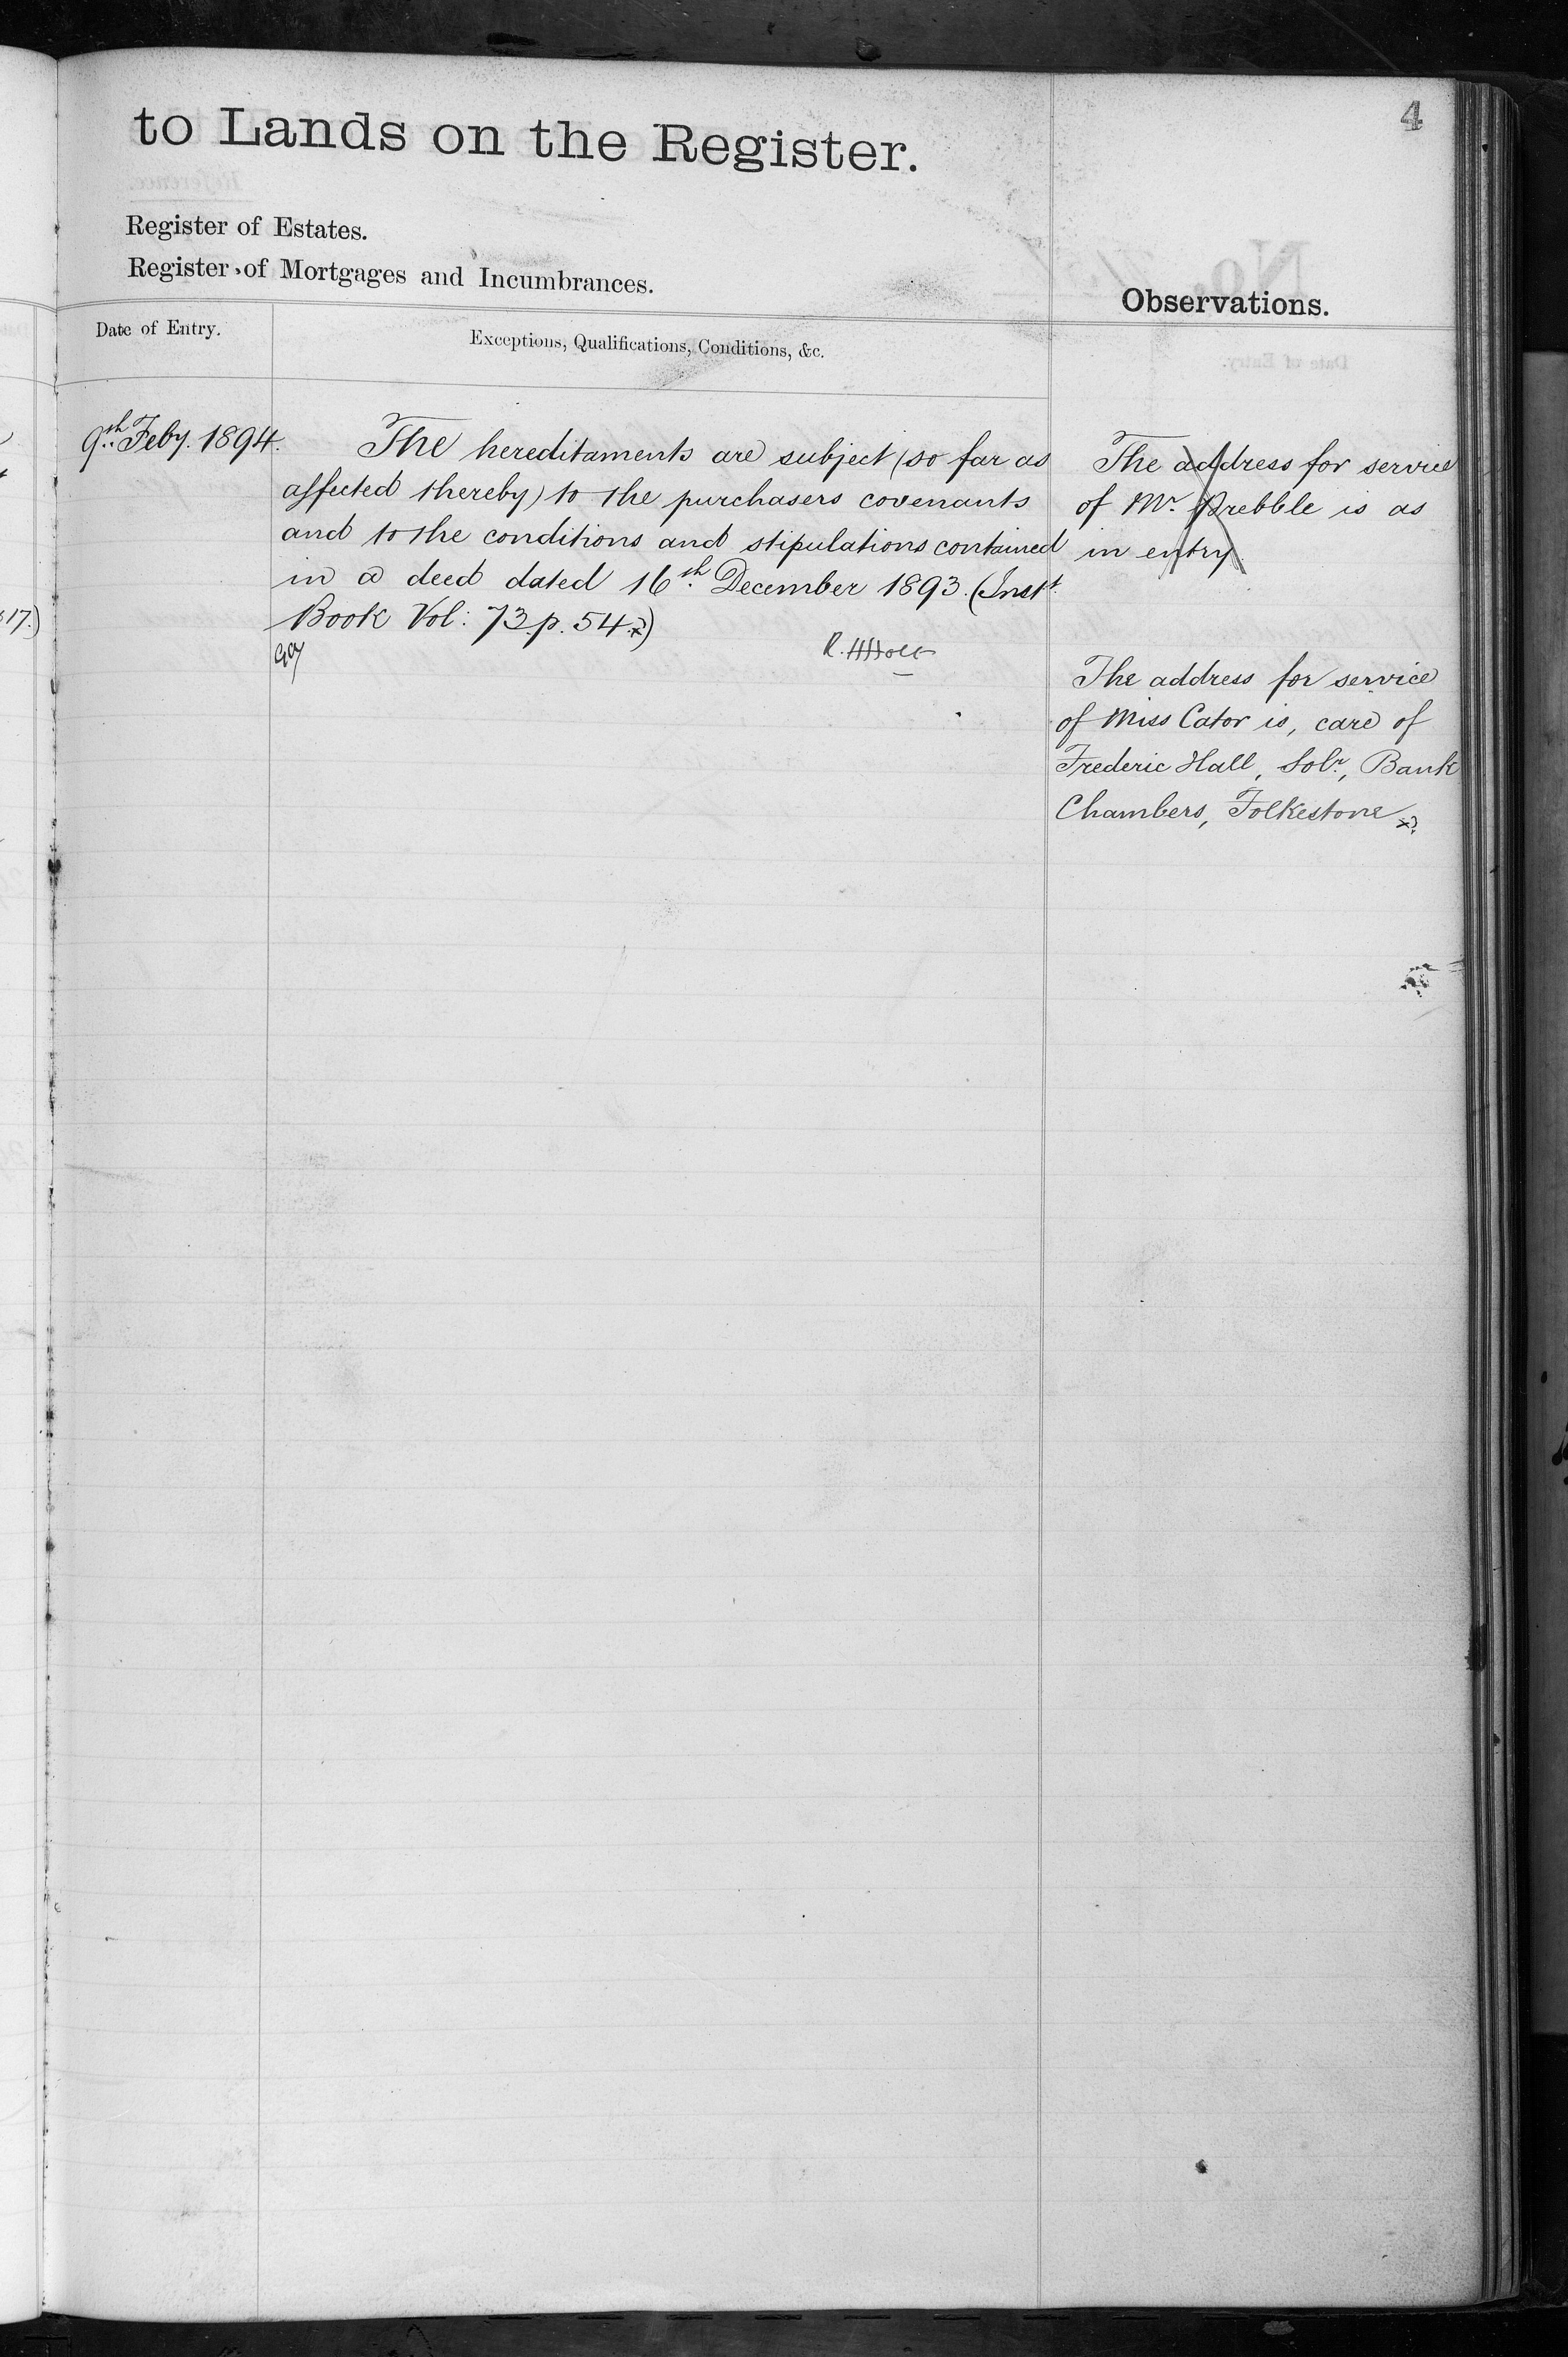 4
to Lands on the Register.
Register of Estates.
Register of Mortgages and Incumbrances.
Observations.
Date of Entry.
Exceptions, Qualifications, Conditions, &c.
9th Feby. 1894.
The hereditaments are subject (so far as
affected thereby) to the purchasers covenants
and to the conditions and stipulations contained
in a deed dated 16th December 1893. (Instt.
Book Vol: 73 p. 54.)
17.)
The address for service
of Mr. Prebble is as
in entry.
The address for service
of Miss Cator is, care of
Frederic Hall, Solr., Bank
Chambers, Folkestone